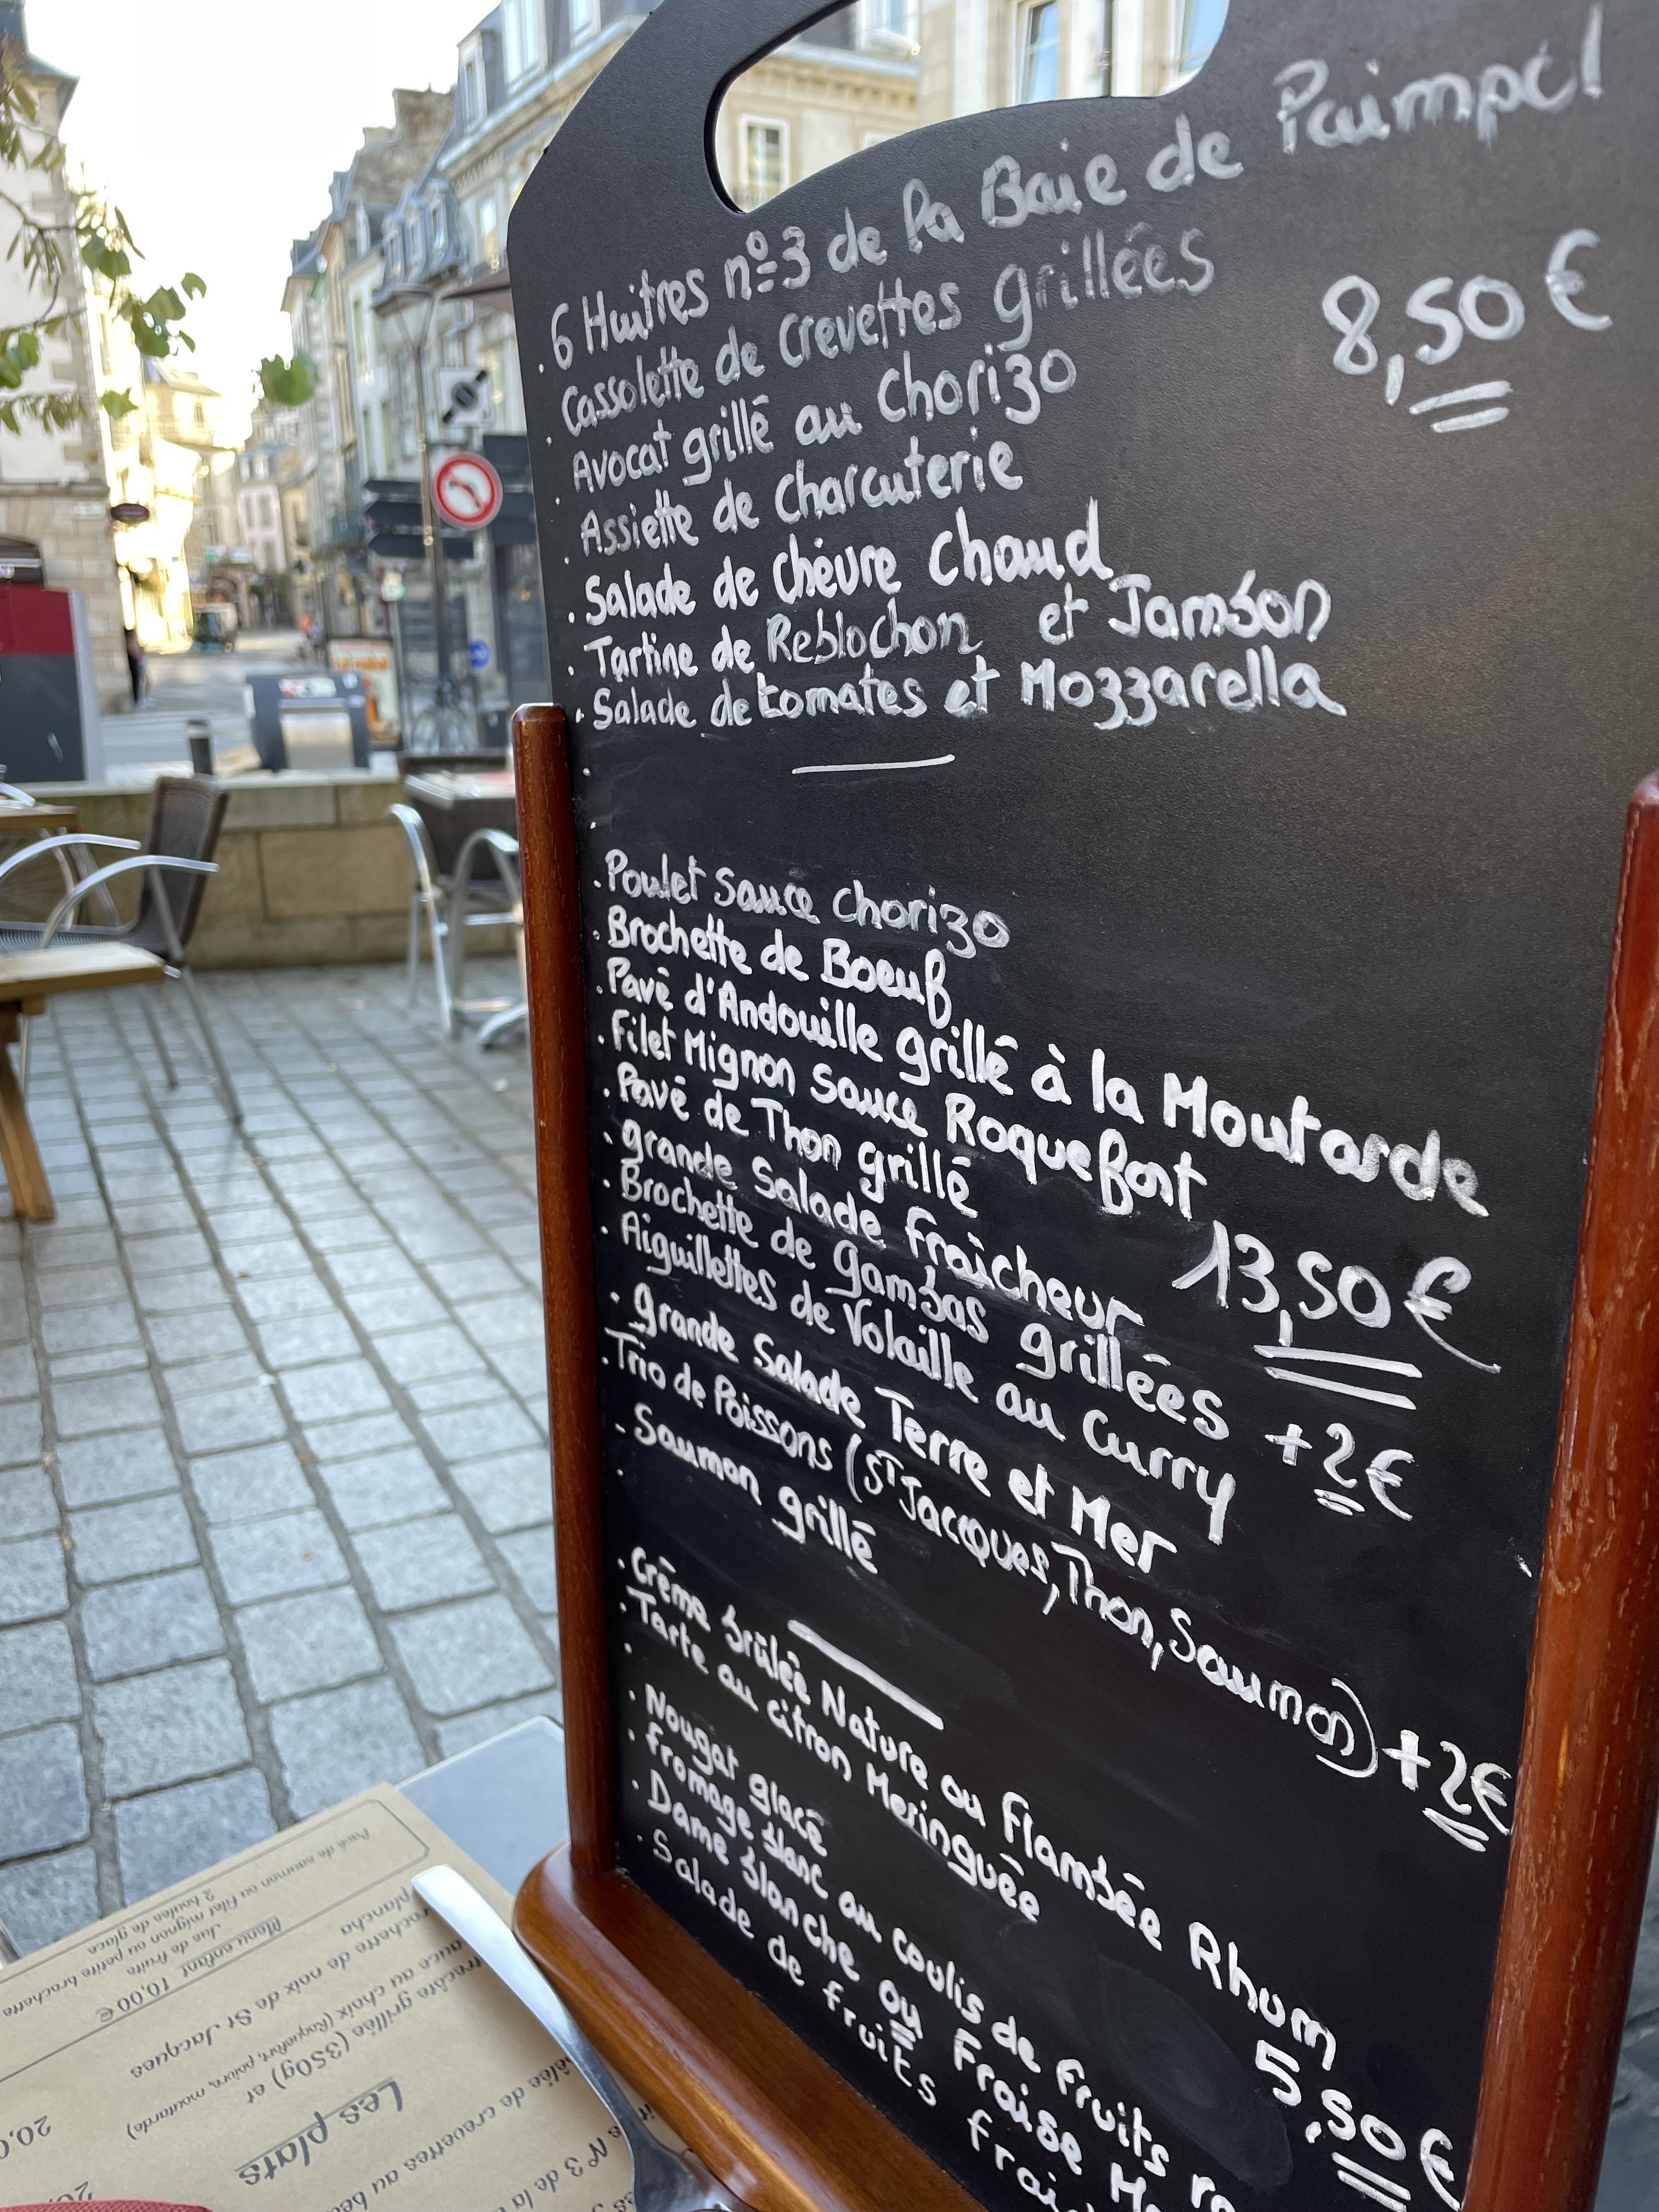 . 6 Huitres n°3 de la Baie de Paimpol
. Cassolette de crevettes grillées
8,50 €
. Avocat grillé au Chorizo
. Assiette de charcuterie
. Salade de chèvre chaud
. Tartine de Reblochon et Jambon
. Salade de tomates et Mozzarella
. Poulet sauce chorizo
. Brochette de Boeuf
. Pavé d'Andouille grillé à la Moutarde
. Filet Mignon sauce Roquefort
. Pavé de Thon grillé
13,50 €
. grande Salade fraîcheur
. Brochette de gambas grillées +2€
. Aiguillettes de Volaille au Curry
. grande Salade Terre et Mer
. Trio de Poissons (St Jacques, Thon, Saumon) +2€
. Saumon grillé
. Crème brûlée Nature ou Flambée Rhum
. Tarte au citron Meringuée
5,50 €
. Nougat glacé
. Fromage blanc au coulis de fruits
. Dame blanche ou Fraise
. Salade de fruits
Les plats
(350g) et
sauce au choix (Roquefort, poivre, moutarde)
de noix de St Jacques
plancha
Menu enfant 10,00 €
Jus de fruits
filet mignon ou petite brochette
2 boules de glace
N° 3 de la
de crevettes au